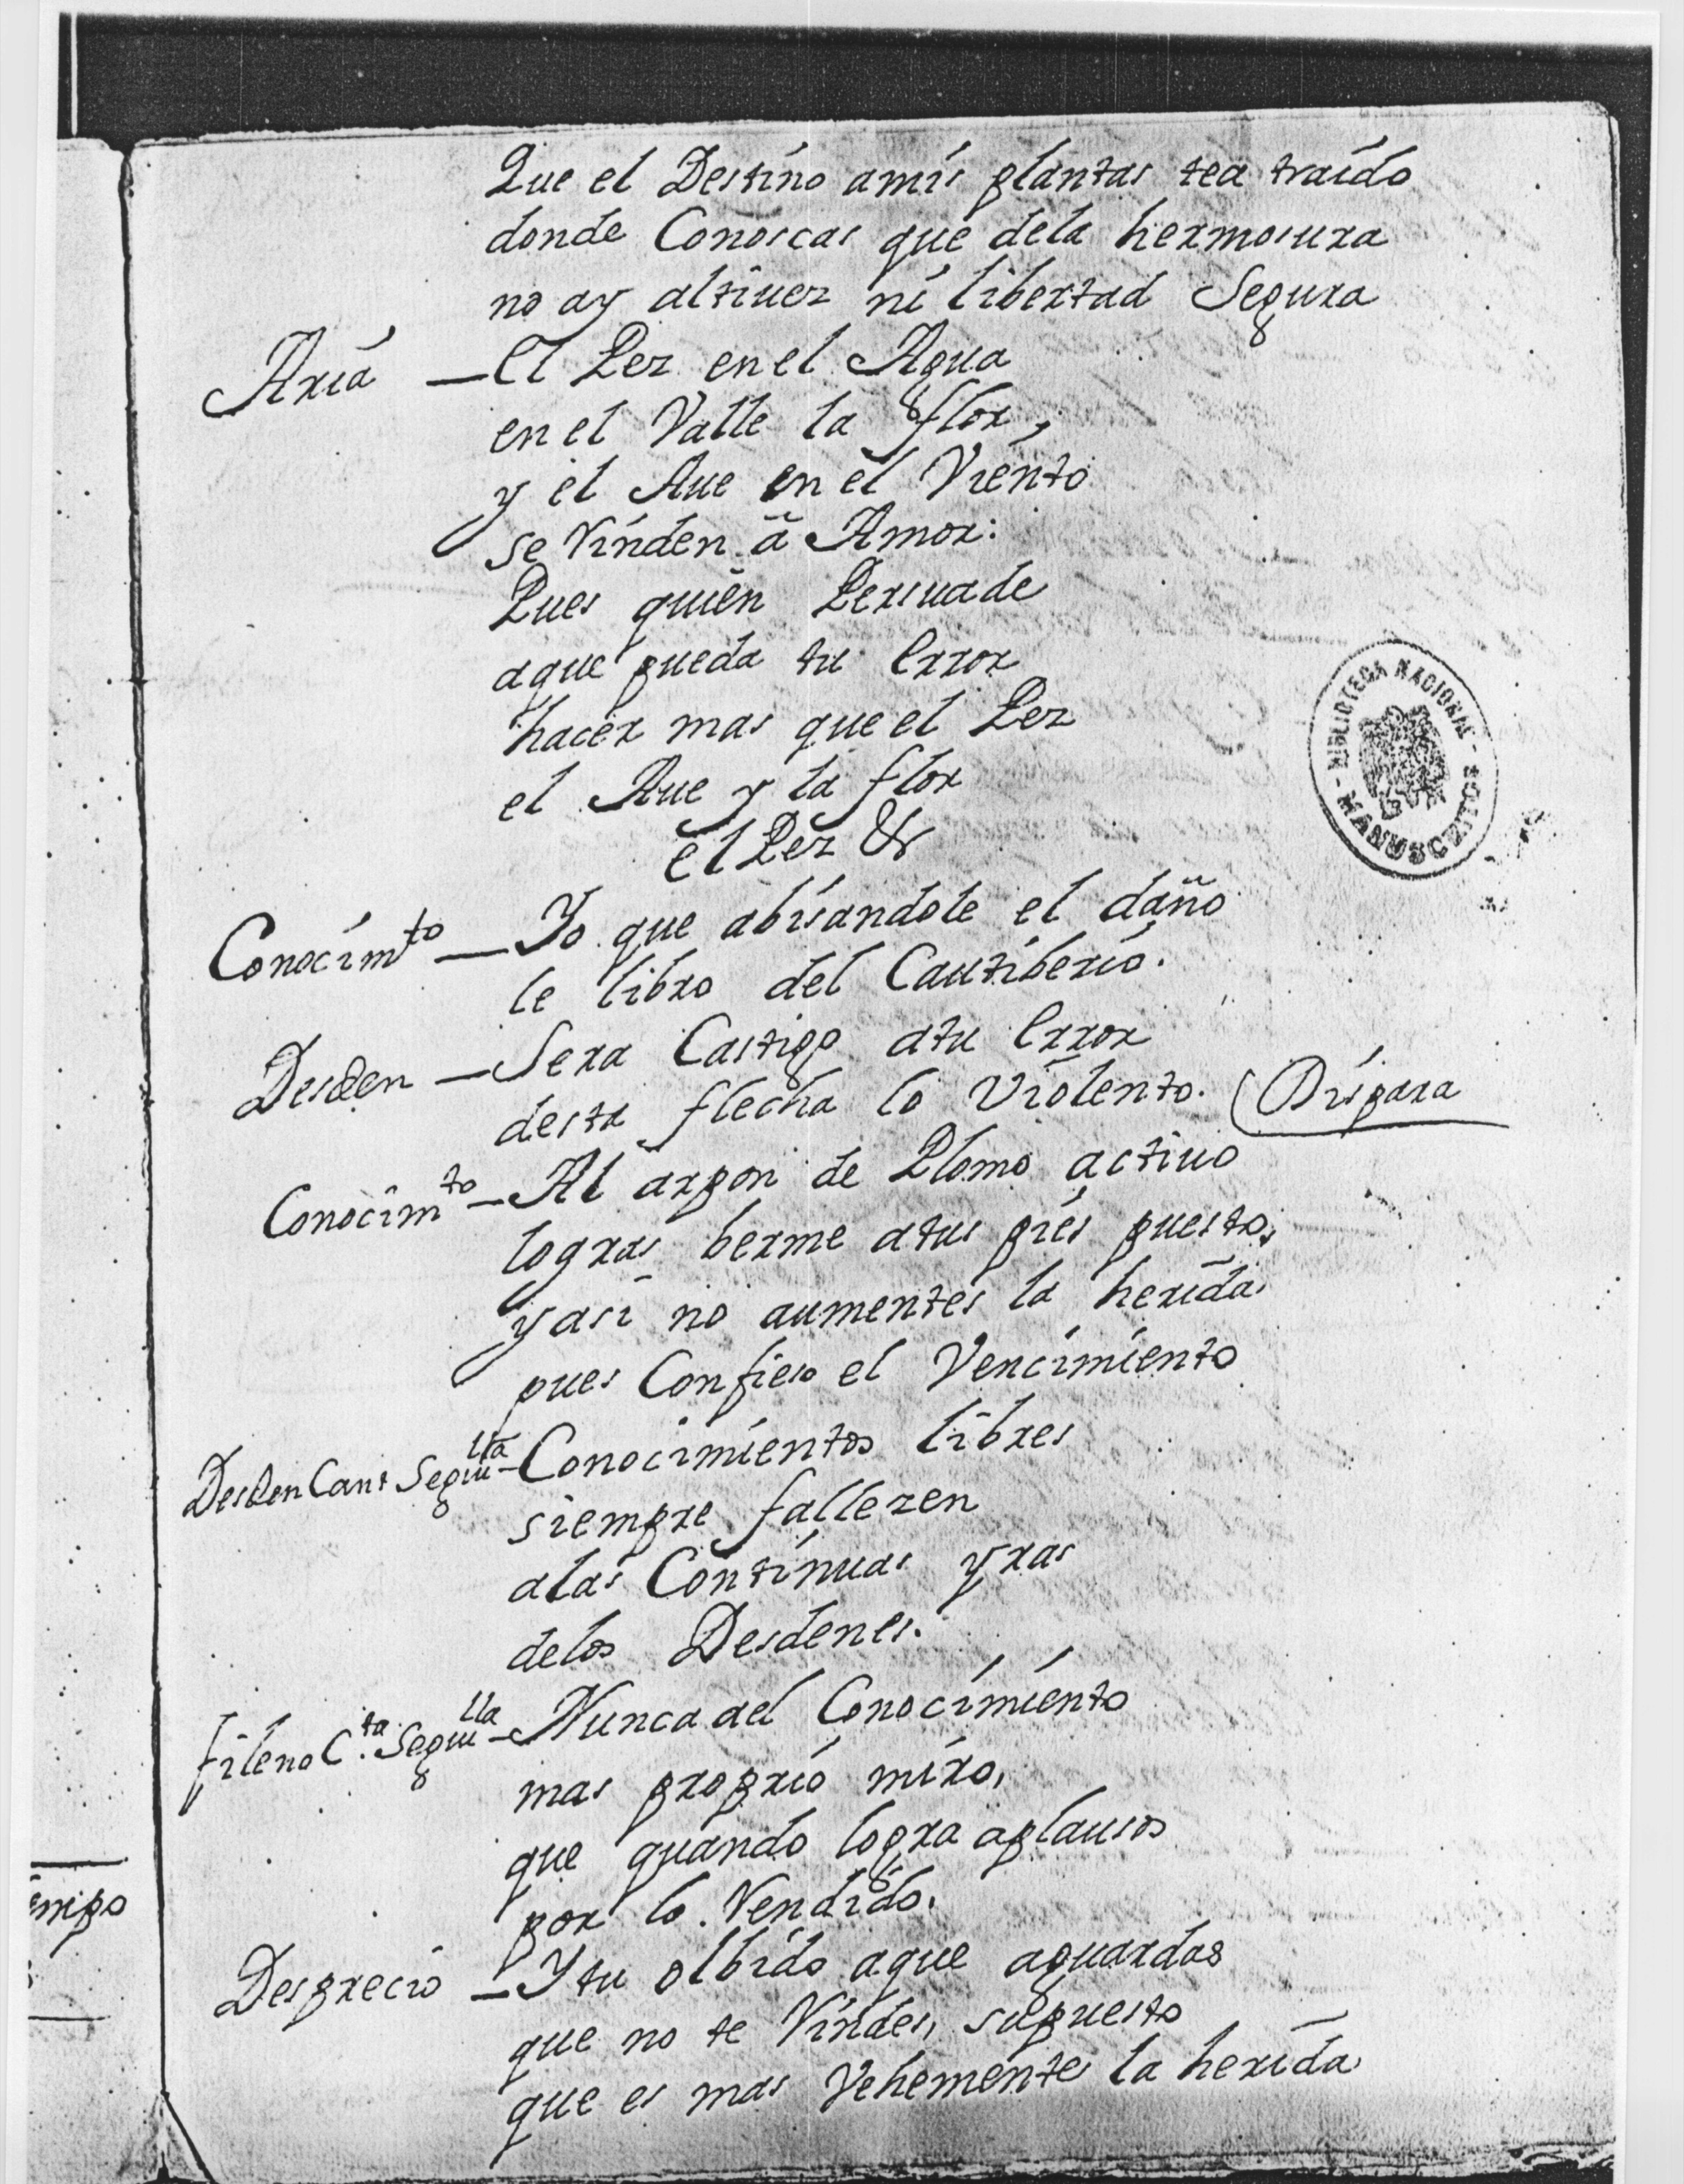 Que el Destino amis plantas tea traido
donde Conoscas que dela hermosura
no ay altiuez ni libertad Segura
Aria — El Pez en el Agua
en el Valle la flor,
y el Aue en el Viento
se Rinden â Amor:
Pues quien Persuade
aque pueda tu Error
hacer mas que el Pez
el Aue y la flor
el Pez &
Conocim.to — Yo que abisandole el daño
le libro del Cautiberio.
Desden — Sera Castigo atu Error
desta flecha lo Violento. (Dispara
Conocim.to — Al arpon de Plomo actiuo
logras berme atus pies puesto,
y asi no aumentes la herida
pues Confieso el Vencimiento
Desden Cant Seguilla — Conocimientos libres
siempre fallezen
alas Continuas yras
delos Desdenes.
fileno C.ta Seguilla — Nunca ael Conocimiento
mas proprio miro,
que quando logra aplausos
por lo Rendido.
Desprecio — Y tu olbido aque aguardas
que no te Rindes, supuesto
que es mas Vehemente la herida
BIBLIOTECA NACIONAL
MANUSCRITOS
empo